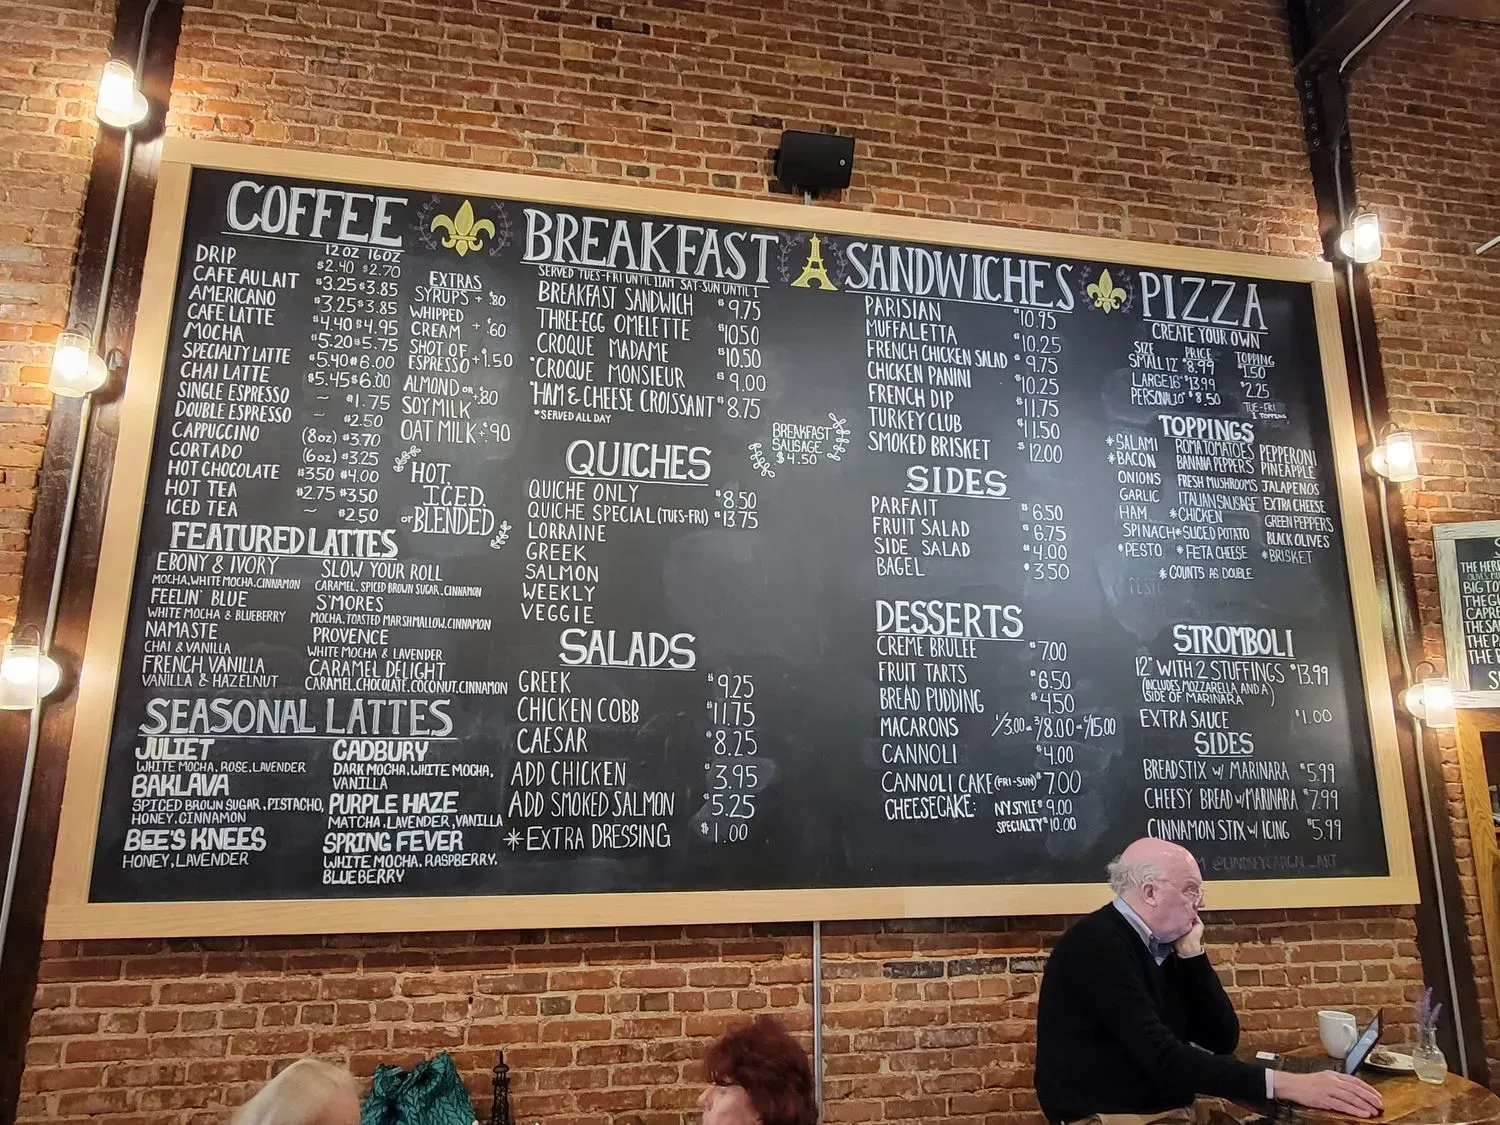 COFFEE
12 OZ 16OZ
DRIP $2.40 $2.70
CAFE AU LAIT $3.25 $3.85
AMERICANO $3.25 $3.85
CAFE LATTE $4.40 $4.95
MOCHA $5.20 $5.75
SPECIALTY LATTE $5.40 $6.00
CHAI LATTE $5.45 $6.00
SINGLE ESPRESSO ~ $1.75
DOUBLE ESPRESSO ~ $2.50
CAPPUCCINO (8oz) $3.70
CORTADO (6oz) $3.25
HOT CHOCOLATE $3.50 $4.00
HOT TEA $2.75 $3.50
ICED TEA ~ $2.50
EXTRAS
SYRUPS + $.80
WHIPPED
CREAM + $.60
SHOT OF
ESPRESSO + $1.50
ALMOND OR +.80
SOY MILK
OAT MILK + $.90
HOT,
ICED,
or BLENDED
FEATURED LATTES
EBONY & IVORY
MOCHA, WHITE MOCHA, CINNAMON
FEELIN' BLUE
WHITE MOCHA & BLUEBERRY
NAMASTE
CHAI & VANILLA
FRENCH VANILLA
VANILLA & HAZELNUT
SLOW YOUR ROLL
CARAMEL, SPICED BROWN SUGAR, CINNAMON
S'MORES
MOCHA, TOASTED MARSHMALLOW, CINNAMON
PROVENCE
WHITE MOCHA & LAVENDER
CARAMEL DELIGHT
CARAMEL, CHOCOLATE, COCONUT, CINNAMON
SEASONAL LATTES
JULIET
WHITE MOCHA, ROSE, LAVENDER
BAKLAVA
SPICED BROWN SUGAR, PISTACHIO,
HONEY, CINNAMON
BEE'S KNEES
HONEY, LAVENDER
CADBURY
DARK MOCHA, WHITE MOCHA,
VANILLA
PURPLE HAZE
MATCHA, LAVENDER, VANILLA
SPRING FEVER
WHITE MOCHA, RASPBERRY,
BLUEBERRY
BREAKFAST
SERVED TUES-FRI UNTIL 11AM SAT-SUN UNTIL 1
BREAKFAST SANDWICH $9.75
THREE-EGG OMELETTE $10.50
CROQUE MADAME $10.50
*CROQUE MONSIEUR $9.00
*HAM & CHEESE CROISSANT $8.75
*SERVED ALL DAY
BREAKFAST
SAUSAGE
$4.50
QUICHES
QUICHE ONLY $8.50
QUICHE SPECIAL (TUES-FRI) $13.75
LORRAINE
GREEK
SALMON
WEEKLY
VEGGIE
SALADS
GREEK $9.25
CHICKEN COBB $11.75
CAESAR $8.25
ADD CHICKEN $3.95
ADD SMOKED SALMON $5.25
*EXTRA DRESSING $1.00
SANDWICHES
PARISIAN $10.95
MUFFALETTA $10.25
FRENCH CHICKEN SALAD $9.75
CHICKEN PANINI $10.25
FRENCH DIP $11.75
TURKEY CLUB $11.50
SMOKED BRISKET $12.00
SIDES
PARFAIT $6.50
FRUIT SALAD $6.75
SIDE SALAD $4.00
BAGEL $3.50
DESSERTS
CREME BRULEE $7.00
FRUIT TARTS $6.50
BREAD PUDDING $4.50
MACARONS 1/3.00 - 3/8.00 - 6/15.00
CANNOLI $4.00
CANNOLI CAKE (FRI-SUN) $7.00
CHEESECAKE: NY STYLE $9.00
SPECIALTY $10.00
PIZZA
CREATE YOUR OWN
SIZE PRICE TOPPING
SMALL 12" $8.99 1.50
LARGE 16" $13.99 $2.25
PERSONAL 10" $8.50 TUE-FRI
1 TOPPING
TOPPINGS
*SALAMI ROMA TOMATOES PEPPERONI
*BACON BANANA PEPPERS PINEAPPLE
ONIONS FRESH MUSHROOMS JALAPENOS
GARLIC ITALIAN SAUSAGE EXTRA CHEESE
HAM *CHICKEN GREEN PEPPERS
SPINACH *SLICED POTATO BLACK OLIVES
*PESTO *FETA CHEESE *BRISKET
*COUNTS AS DOUBLE
STROMBOLI
12" WITH 2 STUFFINGS $13.99
(INCLUDES MOZZARELLA AND A
SIDE OF MARINARA)
EXTRA SAUCE $1.00
SIDES
BREADSTIX w/ MARINARA $5.99
CHEESY BREAD w/ MARINARA $7.99
CINNAMON STIX w/ ICING $5.99
@LINDSEYCARGAL_ART